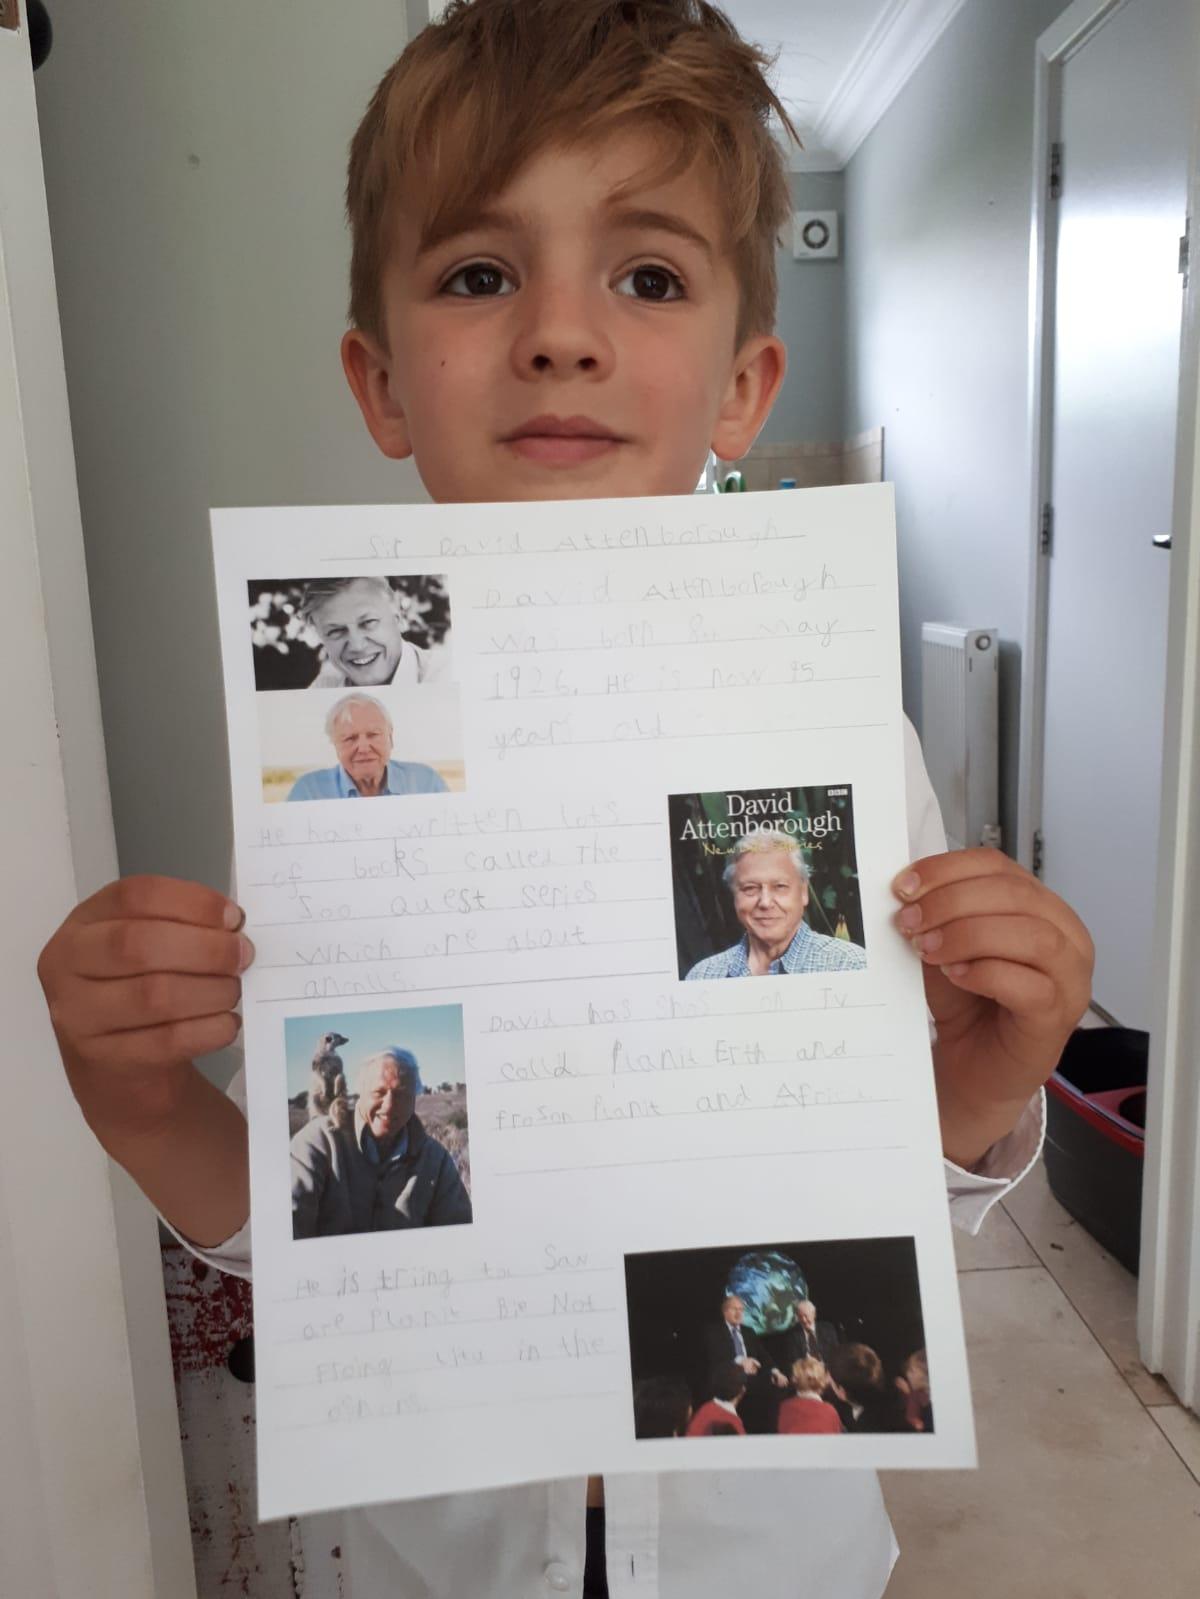 Sir David Attenborough
David Attenborough
was born 8th may
1926. He is now 95
years old
He have written lots
of books called The
Zoo quest series
Which are about
David
Attenborough
New Life Stories
BBC
David has shos on Tv
calld Planit Erth and
froson Planit and Africa
He is triing to Sav
are Planit Bie Not
in the